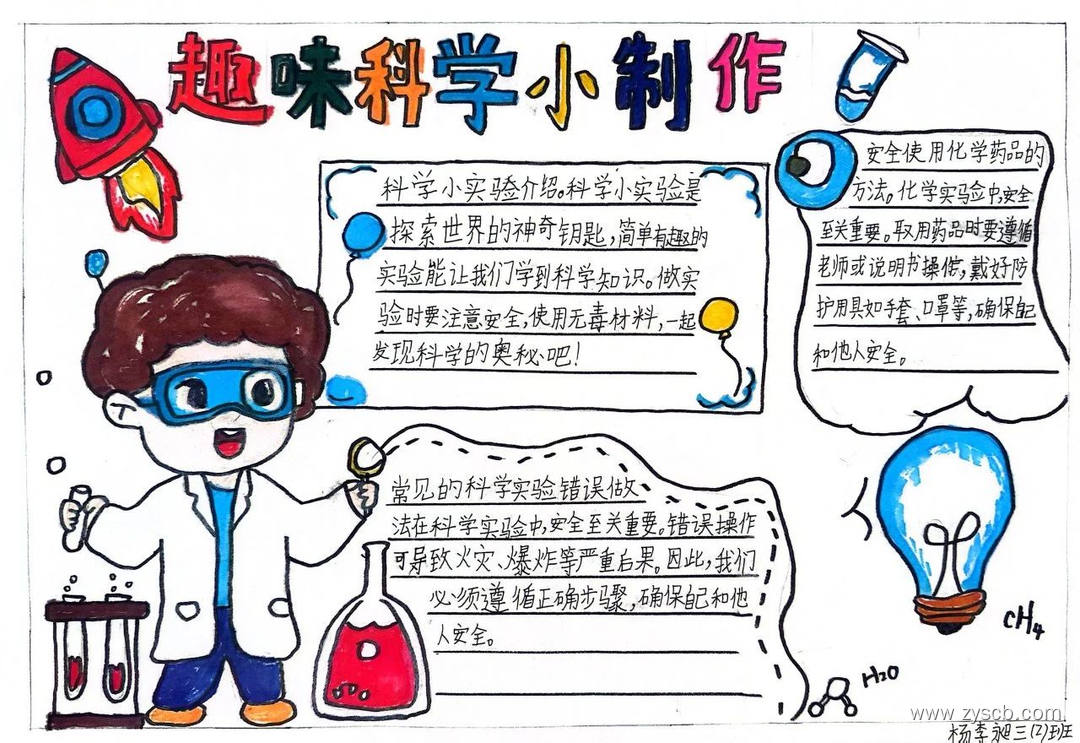 趣味科学小制作
科学小实验介绍。科学小实验是
探索世界的神奇钥匙,简单有趣的
实验能让我们学到科学知识。做实
验时要注意安全,使用无毒材料,一起
发现科学的奥秘吧!
安全使用化学药品的
方法。化学实验中,安全
至关重要。取用药品时要遵循
老师或说明书操作,戴好防
护用具如手套、口罩等,确保自己
和他人安全。
常见的科学实验错误做
法在科学实验中,安全至关重要。错误操作
可导致火灾、爆炸等严重后果。因此,我们
必须遵循正确步骤,确保自己和他
人安全。
CH4
H2O
www.zyscb.com
三(2)班